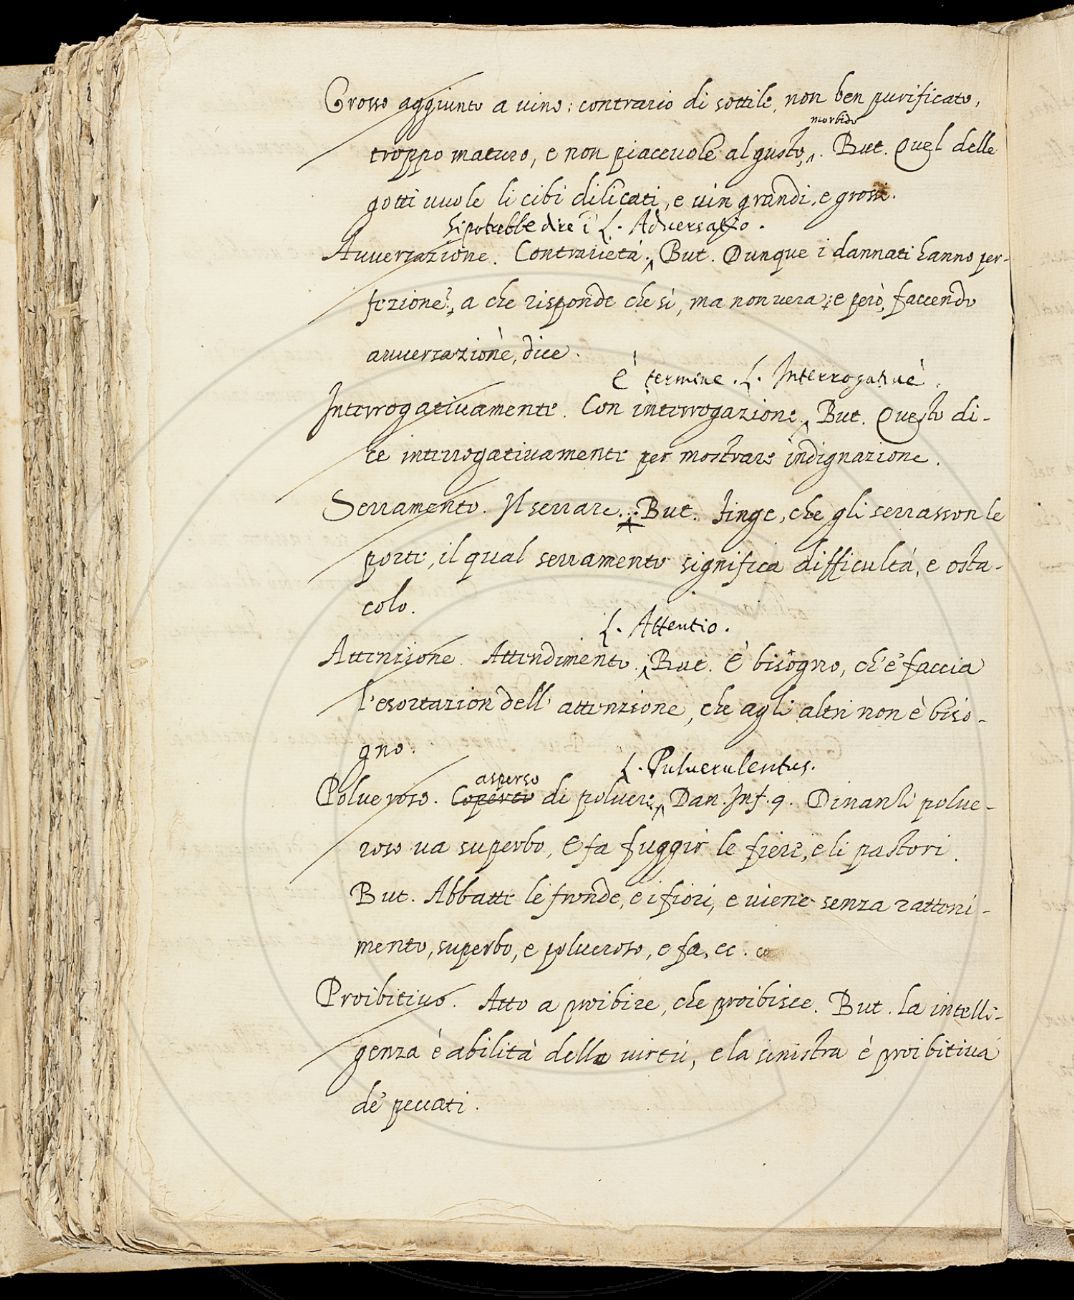 Grosso aggiunto a uino: contrario di sottile, non ben purificato,
morbido
troppo maturo, e non piaceuole al gusto,. But. Quel delle
gotti uuole li cibi dilicati, e uin grandi, e grossi.
Si potrebbe dire i L. Adversatio.
Auuersazione. Contrarietà. But. Dunque i dannati hanno per-
fezione?, a che risponde che sì, ma non uera; e però, faccendo
auuersazione, dice.
È termine. L. Interrogative.
Interrogatiuamente. Con interrogazione. But. Questo di-
ce interrogatiuamente per mostrare indignazione.
Serramento. Il serrare. But. Finge, che gli serrasson le
porte, il qual serramento significa difficultà, e osta-
colo.
L. Attentio.
Attenzione. Attendimento. But. È bisogno, ch'e' faccia
l'esortazion dell'attenzione, che agli altri non è biso-
gno.
asperso L. Pulverulentus.
Polueroso. Coperto di poluere, Dan. Inf. 9. Dinanzi polue-
roso ua superbo, E fa fuggir le fiere, e li pastori.
But. Abbatte le fronde, e i fiori, e uiene senza ratteni-
mento, superbo, e polueroso, e fa, ec.
Proibitiuo. Atto a proibire, che proibisce. But. la intelli-
genza è abilità della uirtù, e la sinistra è proibitiua
de' peccati.